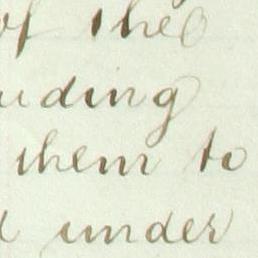 of the
uding
them to
d under